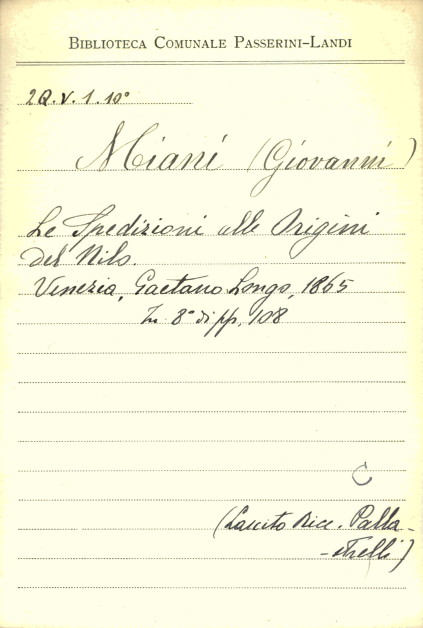 BIBLIOTECA COMUNALE PASSERINI-LANDI
2Q.V.1.10°
Miani (Giovanni)
Le Spedizioni alle Origini
del Nilo.
Venezia, Gaetano Longo, 1865
In 8° di pp. 108
C
(Lascito Bice. Palla-
-strelli)